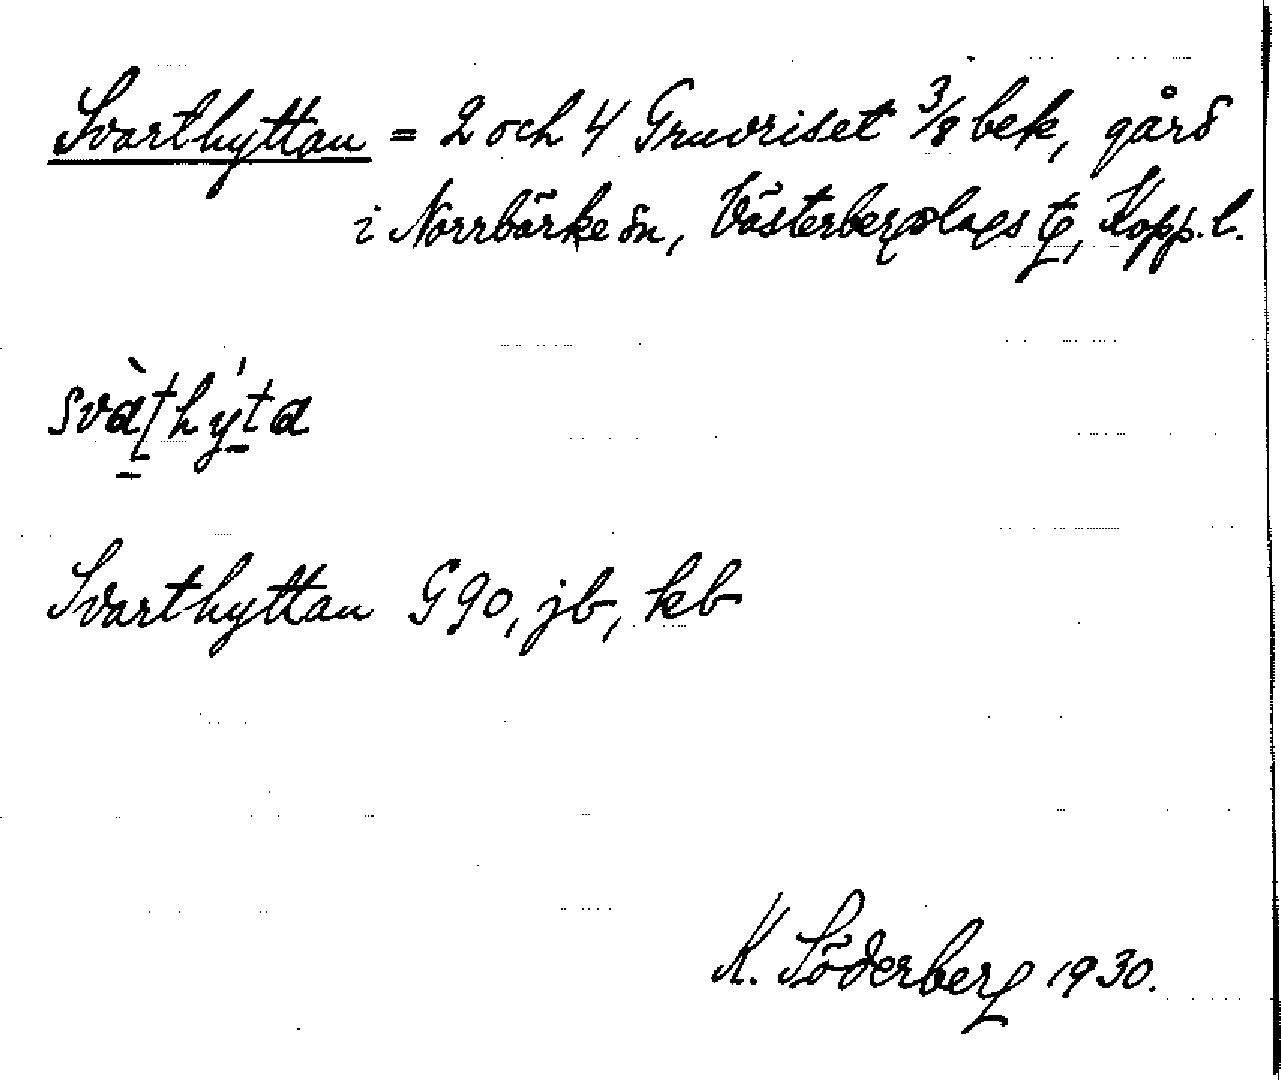 Svarthyttan = 2 och 4 Gruvriset 3/8 bek, gård
i Norrbärke sn, Västerbergslags tg, Kopp. l.
svàṭhýta
Svarthyttan G90, jb, kb
K. Söderberg 1930.